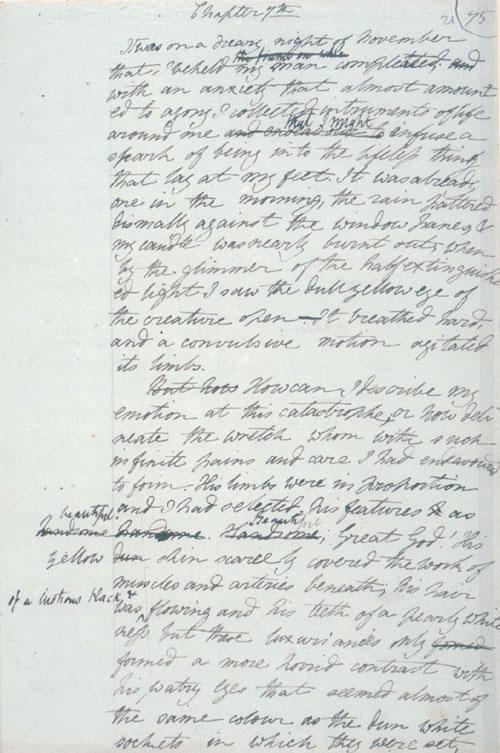 Chapter 7th
21 95
It was on a dreary night of November
the frame on whic
that I beheld my man completed; and
with an anxiety that almost amount
ed to agony, I collected instruments of life
that I might
around me and endeavour to infuse a
spark of being into the lifeless thing
that lay at my feet. It was already
one in the morning, the rain pattered
dismally against the window panes, &
my candle was nearly burnt out, when
by the glimmer of the half extinguish
ed light I saw the dull yellow eye of
the creature open. It breathed hard,
and a convulsive motion agitated
its limbs.
But how How can I describe my
emotion at this catastrophe; or how deli
neate the wretch whom with such
infinite pains and care I had endeavoured
to form. His limbs were in proportion
and I had selected his features as
beautiful.
handsome handsome. Handsome, Great God! His
Beautiful
yellow dun skin scarcely covered the work of
muscles and arteries beneath; his hair
of a lustrous black, &
was flowing and his teeth of a pearly white
ness but these luxuriances only formed
formed a more horrid contrast with
his watry eyes that seemed almost of
the same colour as the dun white
sockets in which they were set